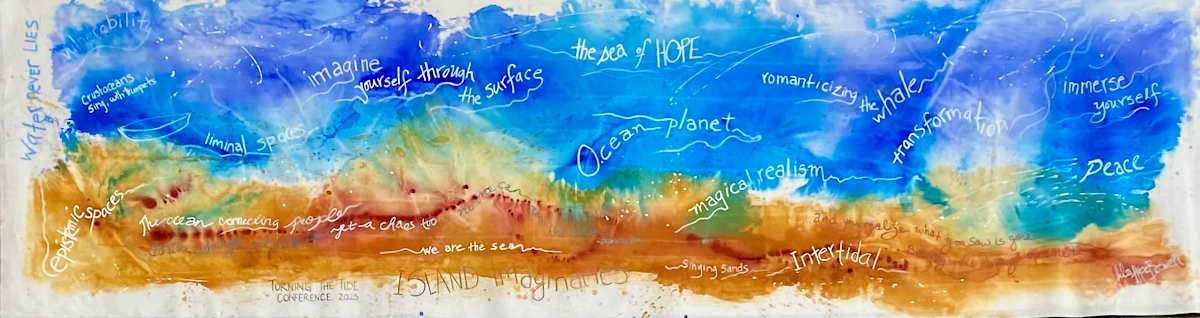 Water never LIES
Vulnerability
Crustaceans
sing with trumpets
liminal spaces
imagine
yourself through
the surface
the sea of HOPE
Ocean planet
romanticizing
the whaler
transformation
immerse
yourself
Peace
magical realism
Epistemic spaces
The ocean connecting people
yet a chaos too
we are the sea
Singing Sands
Intertidal
and normalize what you saw is
TURNING THE TIDE
CONFERENCE 2025
ISLAND imaginaries